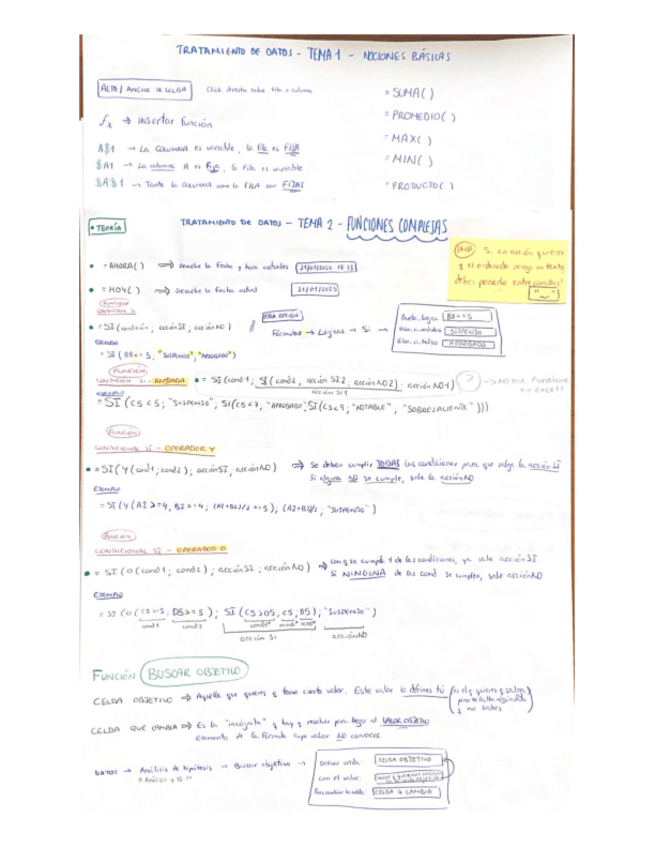 TRATAMIENTO DE DATOS - TEMA 1 - NOCIONES BÁSICAS
ALTO / ANCHO DE CELDA Click derecho sobre fila o columna
= SUMA( )
fx → Insertar función
= PROMEDIO( )
A$1 → La COLUMNA es variable, la fila es FIJA
= MAX( )
$A1 → La columna A es Fija, la fila es variable
= MIN( )
$A$1 → Tanto la COLUMNA como la FILA son FIJAS
= PRODUCTO( )
• TEORÍA
TRATAMIENTO DE DATOS - TEMA 2 - FUNCIONES COMPLEJAS
Si en acción quieres
q el ordenador ponga un texto
debes ponerlo entre comillas!
" _ "
• = AHORA( ) ⇒ Devuelve la fecha y hora actuales
• = HOY( ) ⇒ Devuelve la fecha actual
FUNCIÓN
CONDICIONAL SI
• = SI(condición; acciónSI; acciónNO)
OTRA OPCIÓN
Fórmulas → Lógicas → Si →
Prueba_lógica B2<=5
Valor_si_verdadero SUSPENSO
Valor_si_falso APROBADO
EJEMPLO
= SI( <= 5; "SUSPENSO"; "APROBADO")
FUNCIÓN
CONDICIONAL SI - ANIDADA • = SI(cond1; SI(cond2, acción SI2, acciónNO2); acciónNO1) ? → NO ME FUNCIONA EN EXCEL
acción SI1
EJEMPLO
= SI(C5<5; "SUSPENSO"; SI(C5<7; "APROBADO"; SI(C5<9; "NOTABLE", "SOBRESALIENTE")))
FUNCIÓN
CONDICIONAL SI - OPERADOR Y
• = SI(Y(cond1; cond2); acciónSI; acciónNO) ⇒ Se deben cumplir TODAS las condiciones para que salga la acción SI
Si alguna NO se cumple, sale la acciónNO
EJEMPLO
= SI(Y(A2>=4, B2>=4; (A2+B2)/2>=5); (A2+B2)/2; "SUSPENSO")
FUNCIÓN
CONDICIONAL SI - OPERADOR O
• = SI(O(cond1; cond2); acciónSI; acciónNO) ⇒ con q se cumpla 1 de las condiciones, ya sale acciónSI
Si NINGUNA de las cond. se cumplen, sale acciónNO
EJEMPLO
= SI(O(C5>=5; D5>=5); SI(C5>D5, C5, D5); "SUSPENSO")
cond1 cond2
acción SI acciónNO
FUNCIÓN BUSCAR OBJETIVO
CELDA OBJETIVO ⇒ Aquella que quieres q tome cierto valor. Este valor lo defines tú
CELDA QUE CAMBIA ⇒ Es la "incógnita" q hay q para llegar al VALOR OBJETIVO
Elemento de la fórmula cuyo valor NO conoces
DATOS → Análisis de hipótesis → Buscar objetivo →
Definir celda: CELDA OBJETIVO
con el valor:
Para cambiar la celda: CELDA Q CAMBIA